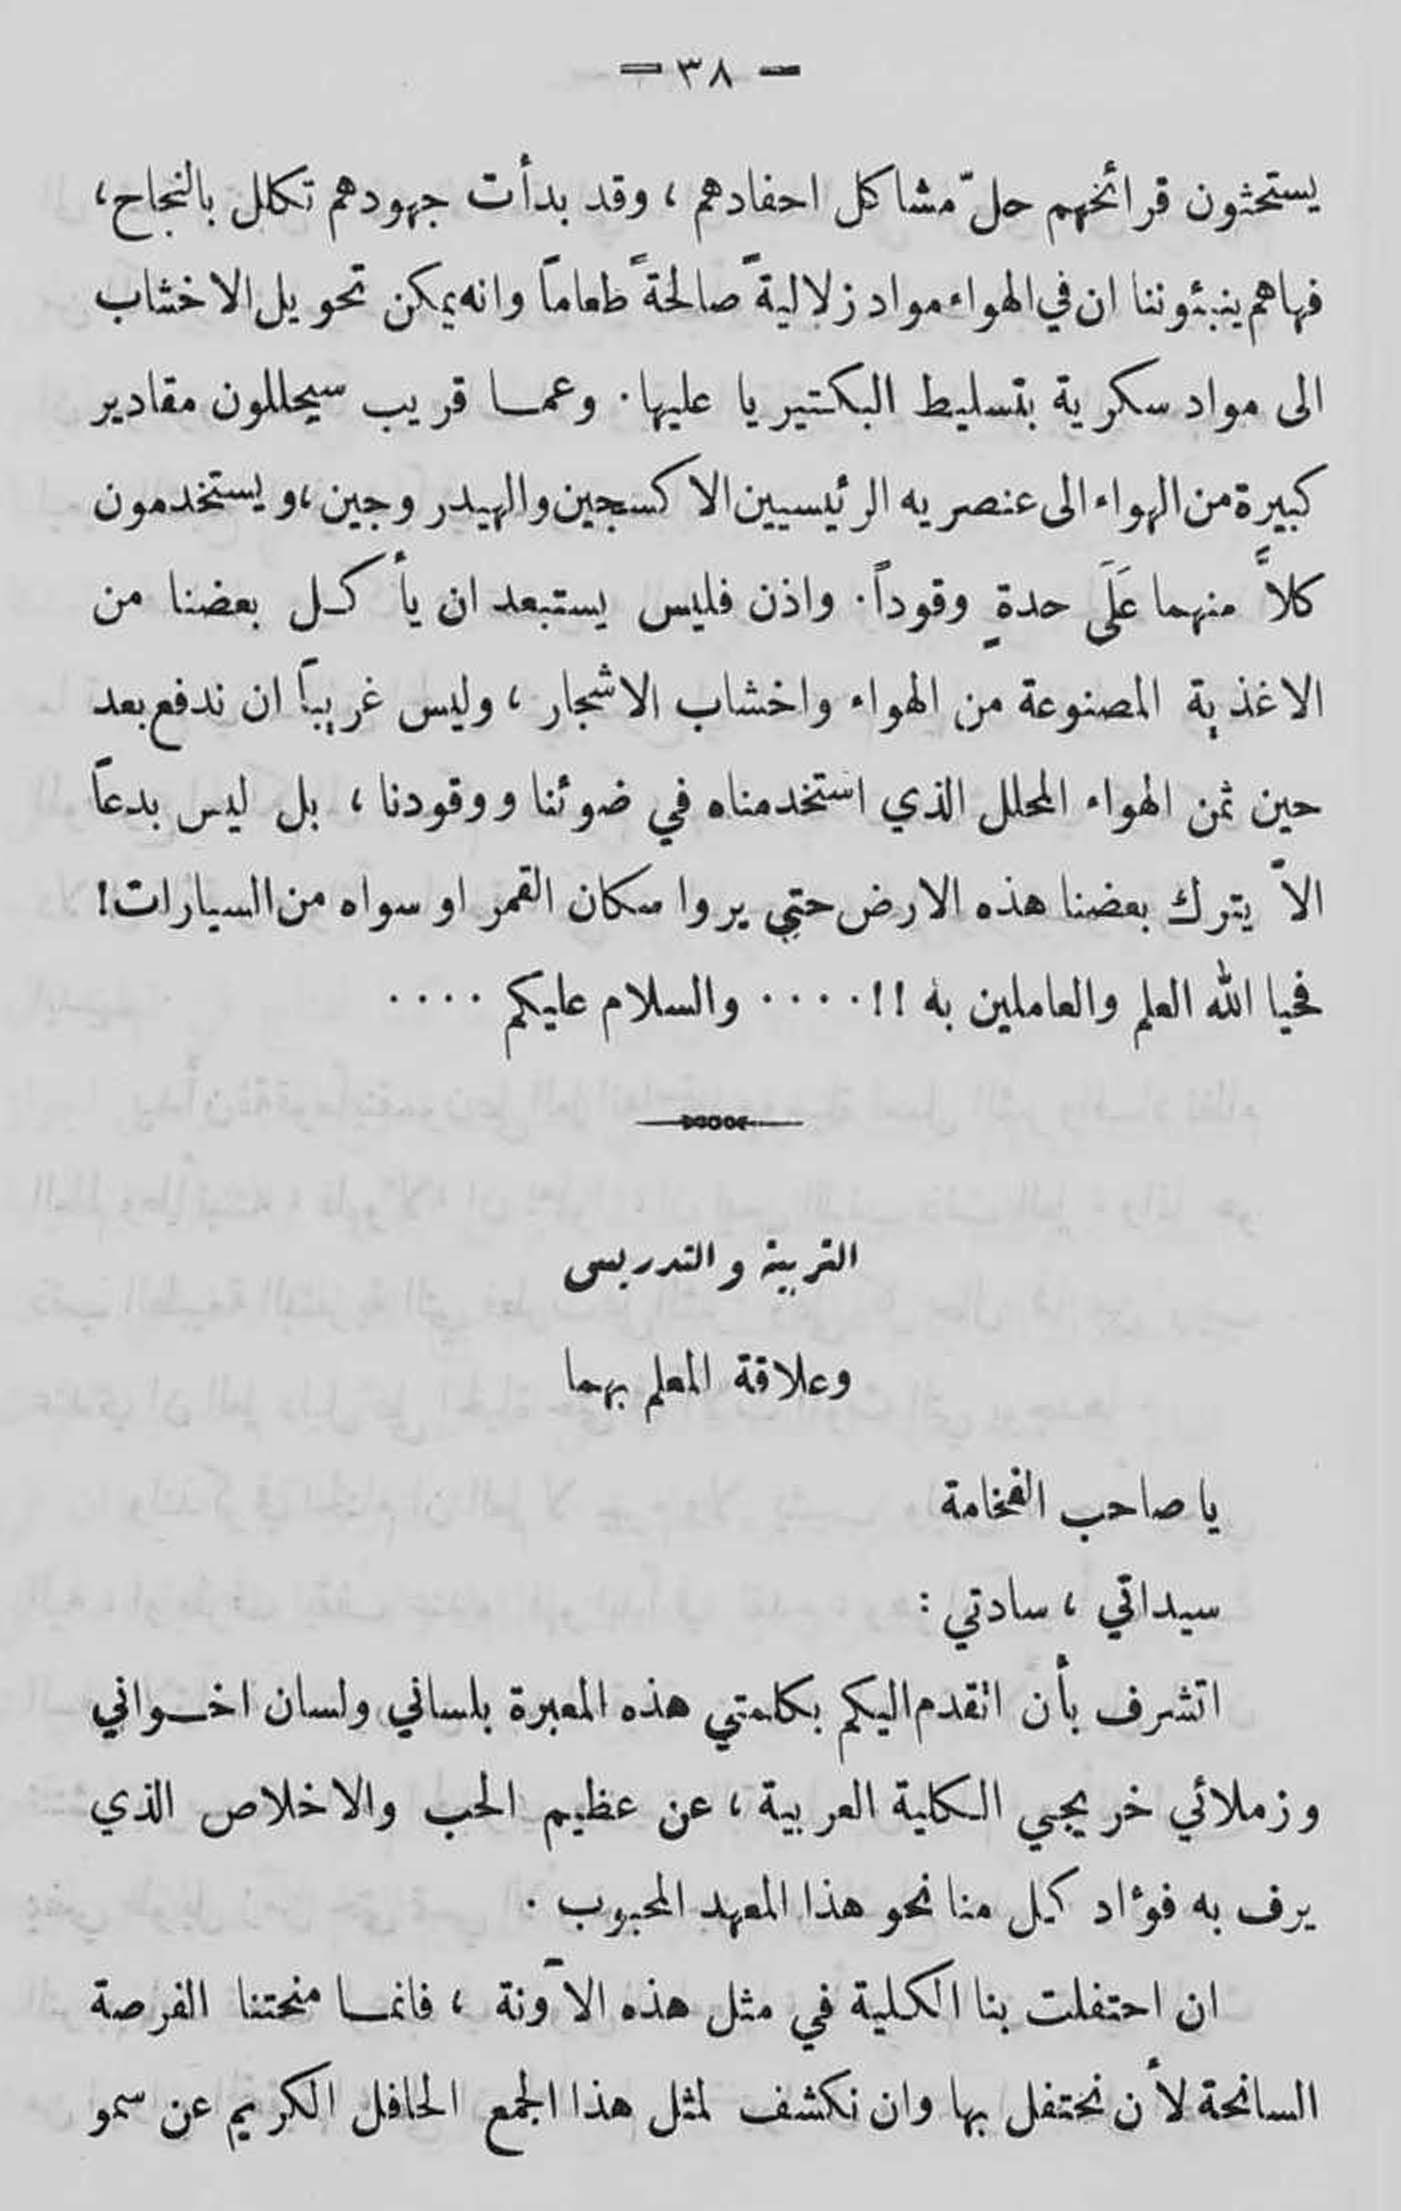 – ٣٨ –
يستحثون قرائحهم حلّ مشاكل احفادهم ، وقد بدأت جهودهم تكلل بالنجاح ،
فهاهم ينبئوننا ان في الهواء مواد زلاليةً صالحةً طعاماً وانه يمكن تحويل الاخشاب
الى مواد سكرية بتسليط البكتيريا عليها . وعما قريب سيحللون مقادير
كبيرة من الهواء الى عنصريه الرئيسيين الاكسجين والهيدروجين ، ويستخدمون
كلاً منهما عَلَى حدةٍ وقوداً . واذن فليس يستبعد ان يأكل بعضنا من
الاغذية المصنوعة من الهواء واخشاب الاشجار ، وليس غريباً ان ندفع بعد
حين ثمن الهواء المحلل الذي استخدمناه في ضوئنا ووقودنا ، بل ليس بدعاً
الاّ يترك بعضنا هذه الارض حتى يروا سكان القمر او سواه من السيارات !
فحيا الله العلم والعاملين به !! . . . . والسلام عليكم . . . .
التربية والتدريس
وعلاقة المعلم بهما
يا صاحب الفخامة
سيداتي ، سادتي :
اتشرف بأن اتقدم اليكم بكلمتي هذه المعبرة بلساني ولسان اخواني
وزملائي خريجي الكلية العربية ، عن عظيم الحب والاخلاص الذي
يرف به فؤاد كل منا نحو هذا المعهد المحبوب .
ان احتفلت بنا الكلية في مثل هذه الآونة ، فانما منحتنا الفرصة
السانحة لأن نحتفل بها وان نكشف لمثل هذا الجمع الحافل الكريم عن سمو